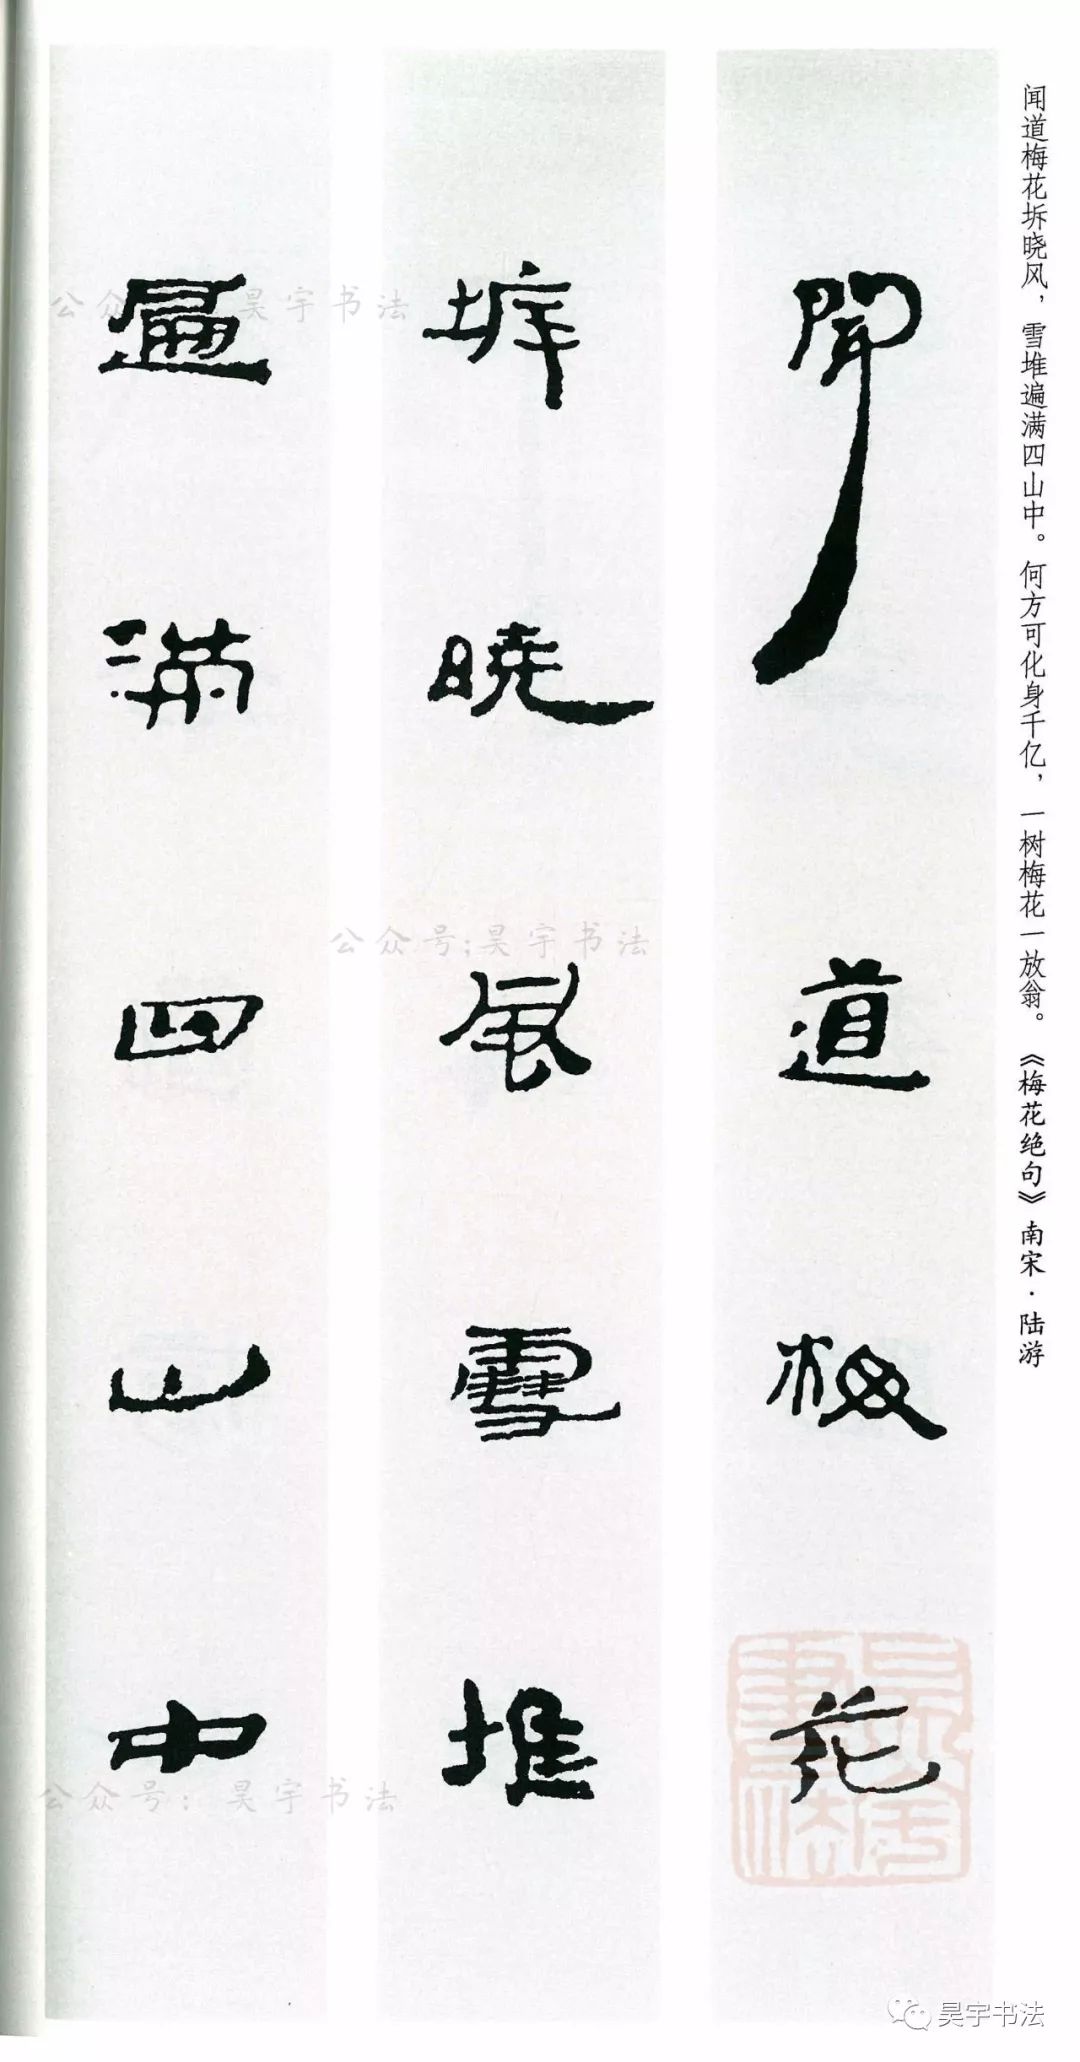 闻道梅花坼晓风，雪堆遍满四山中。何方可化身千亿，一树梅花一放翁。《梅花绝句》南宋·陆游
聞道梅花
坼曉風雪堆
遍滿四山中
公众号：昊宇书法
公众号:昊宇书法
公众号：昊宇书法
昊宇书法